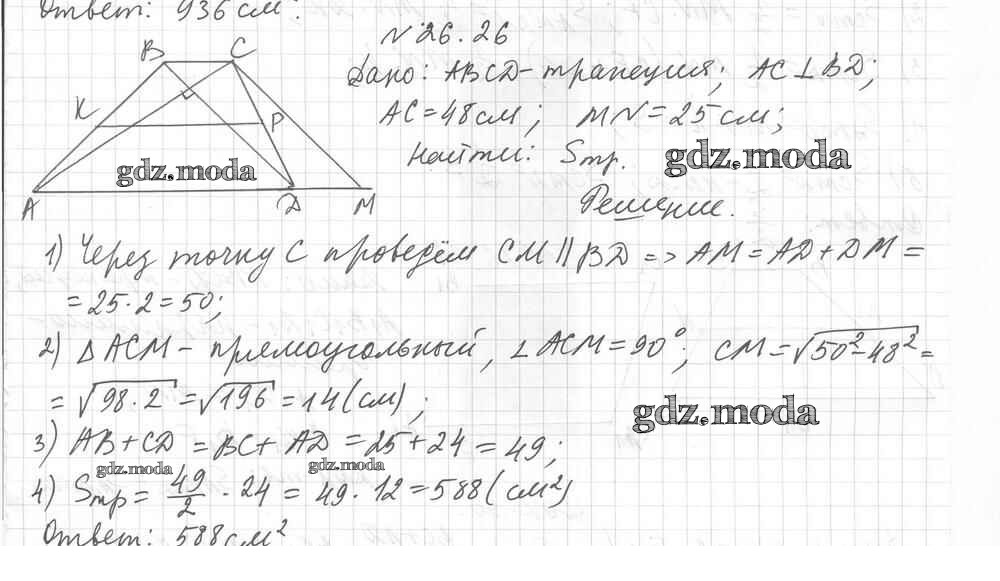 Ответ: 936 см².
N 26.26
B C
Дано: ABCD - трапеция; AC ⊥ BD;
K P
AC = 48 см; MN = 25 см;
Найти: Sтр.
gdz.moda
gdz.moda
A D M
Решение.
1) Через точку C проведём CM || BD => AM = AD + DM =
= 25·2 = 50;
2) Δ ACM - прямоугольный, ∠ACM = 90°; CM = √50² - 48² =
= √98·2 = √196 = 14 (см);
gdz.moda
3) AB + CD = BC + AD = 25 + 24 = 49;
gdz.moda gdz.moda
4) Sтр = 49/2 · 24 = 49 · 12 = 588 (см²)
Ответ: 588 см²